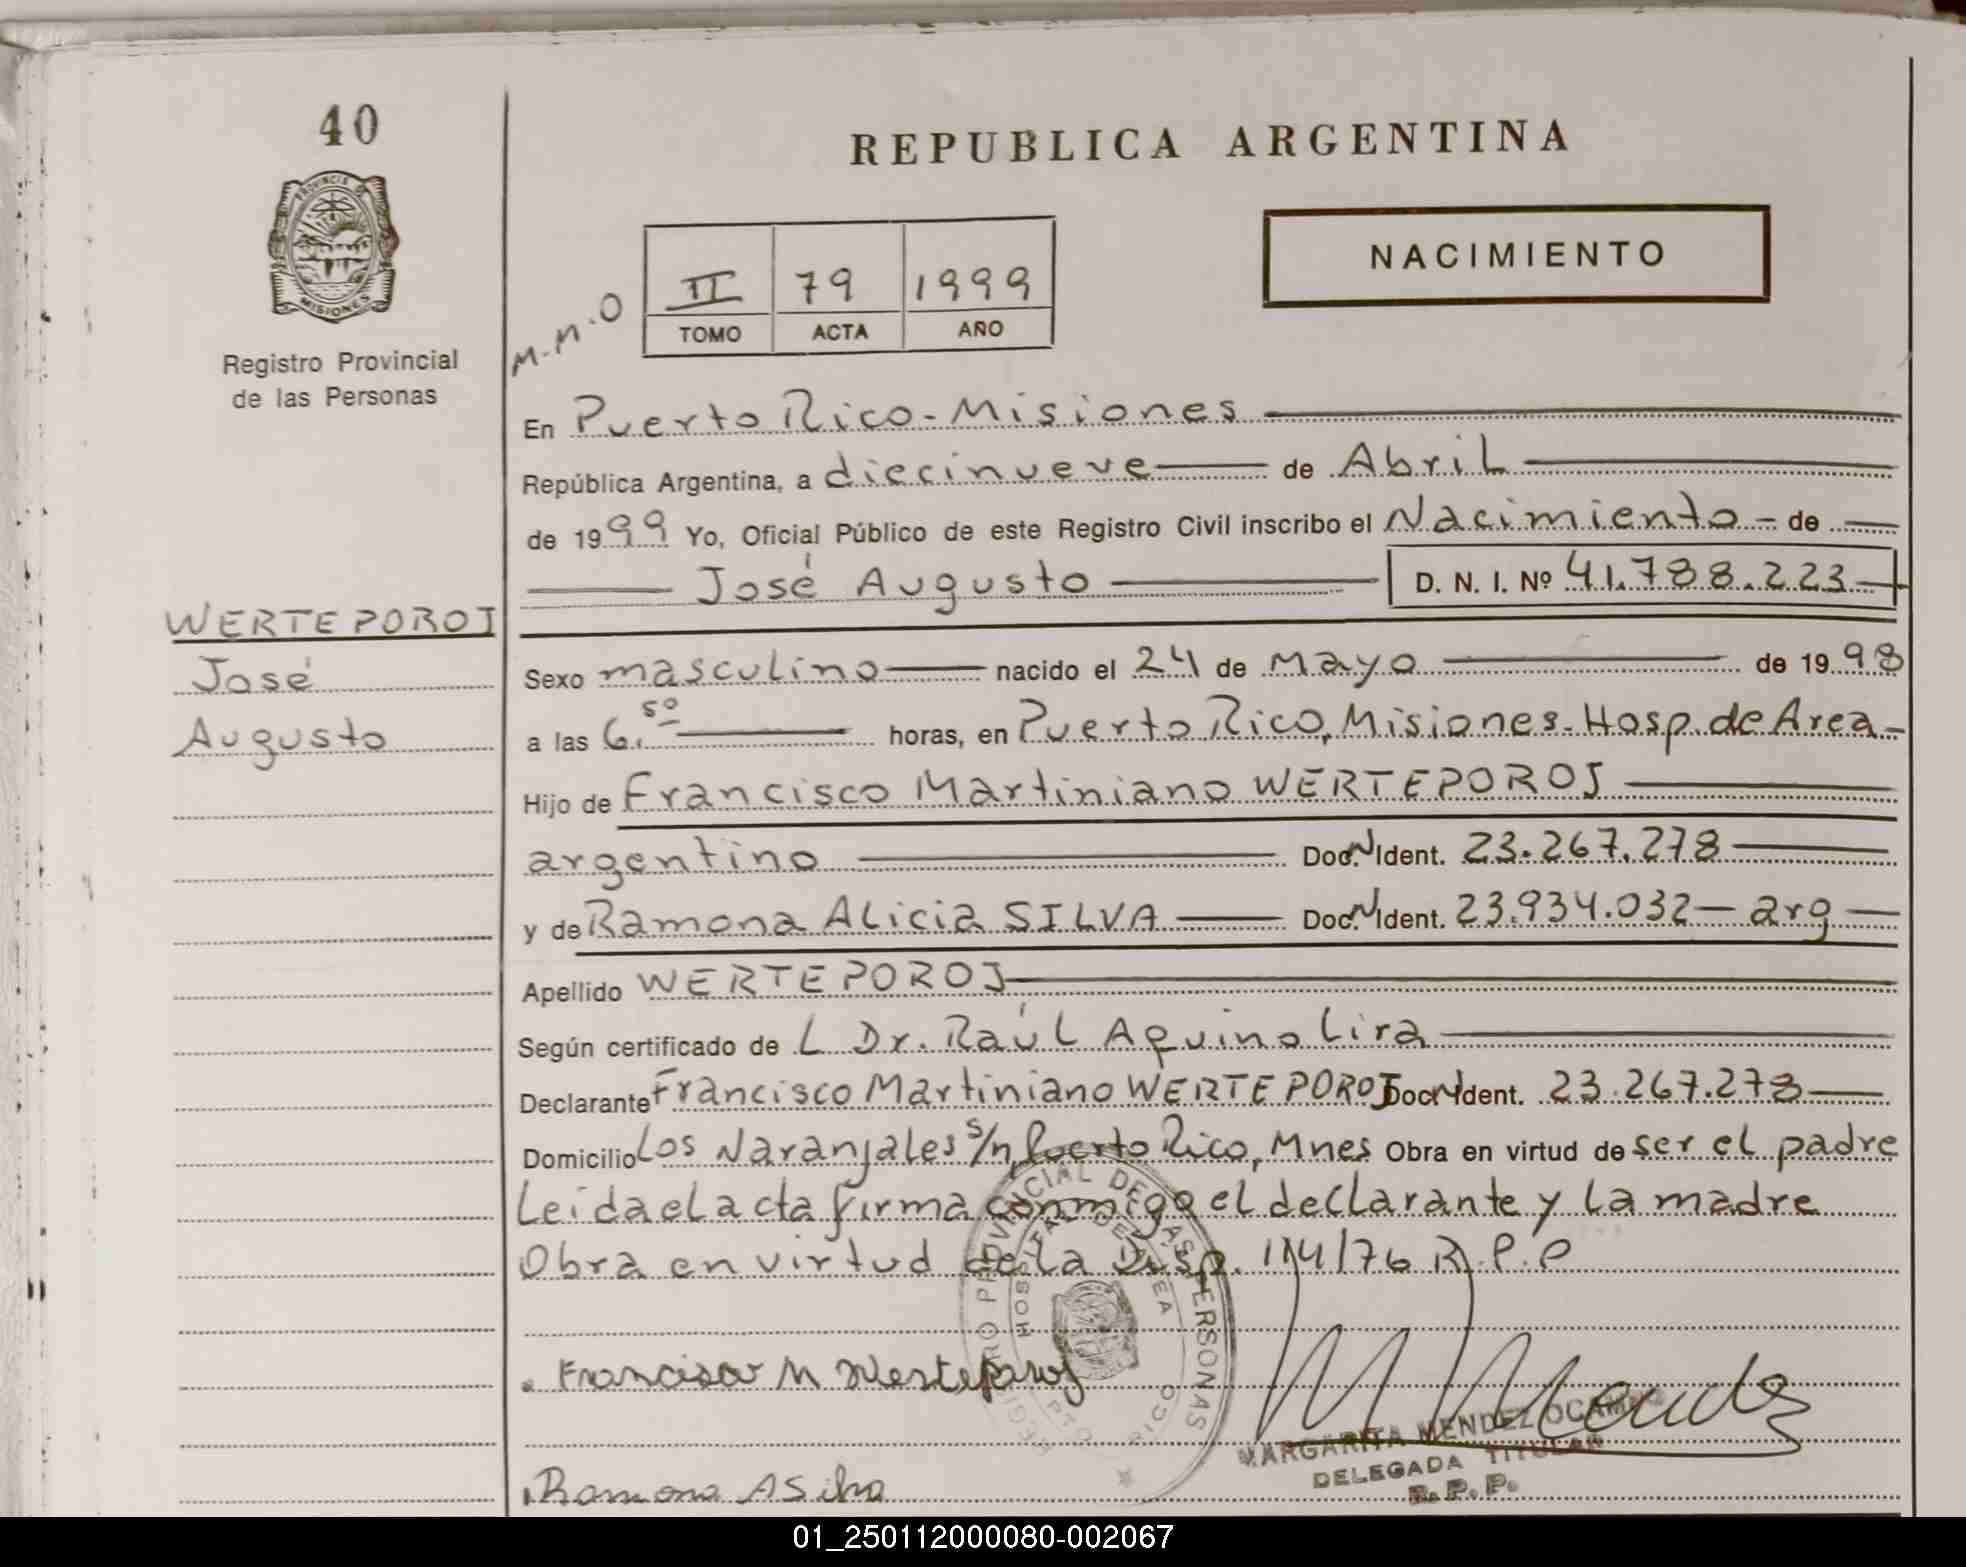 40
REPUBLICA ARGENTINA
PROVINCIA DE
MISIONES
NACIMIENTO
Registro Provincial
de las Personas
M.N.O
II 79 1999
TOMO ACTA AÑO
En Puerto Rico - Misiones
República Argentina, a diecinueve de Abril
de 1999 Yo, Oficial Público de este Registro Civil inscribo el Nacimiento - de
José Augusto D. N. I. Nº 41.788.223
WERTEPOROJ
José
Augusto
Sexo masculino nacido el 24 de Mayo de 1998
a las 6.50 horas, en Puerto Rico, Misiones - Hosp. de Area -
Hijo de Francisco Martiniano WERTEPOROJ
argentino Doc. N Ident. 23.267.278
y de Ramona Alicia SILVA Doc. N Ident. 23.934.032 - arg
Apellido WERTEPOROJ
Según certificado de L Dr. Raúl Aquino Lira
Declarante Francisco Martiniano WERTEPOROJ Doc. N Ident. 23.267.278
Domicilio Los Naranjales s/n, Puerto Rico, Mnes Obra en virtud de ser el padre
Leida el acta firma conmigo el declarante y la madre
Obra en virtud de la Disp. 114/76 R.P.P
REGISTRO PROVINCIAL DE LAS PERSONAS
HOSPITAL DE AREA
PTO. RICO
Francisco M Werteporoj
MARGARITA MENDEZ OCAMPO
DELEGADA TITULAR
R.P.P.
Ramona A Silva
01_250112000080-002067